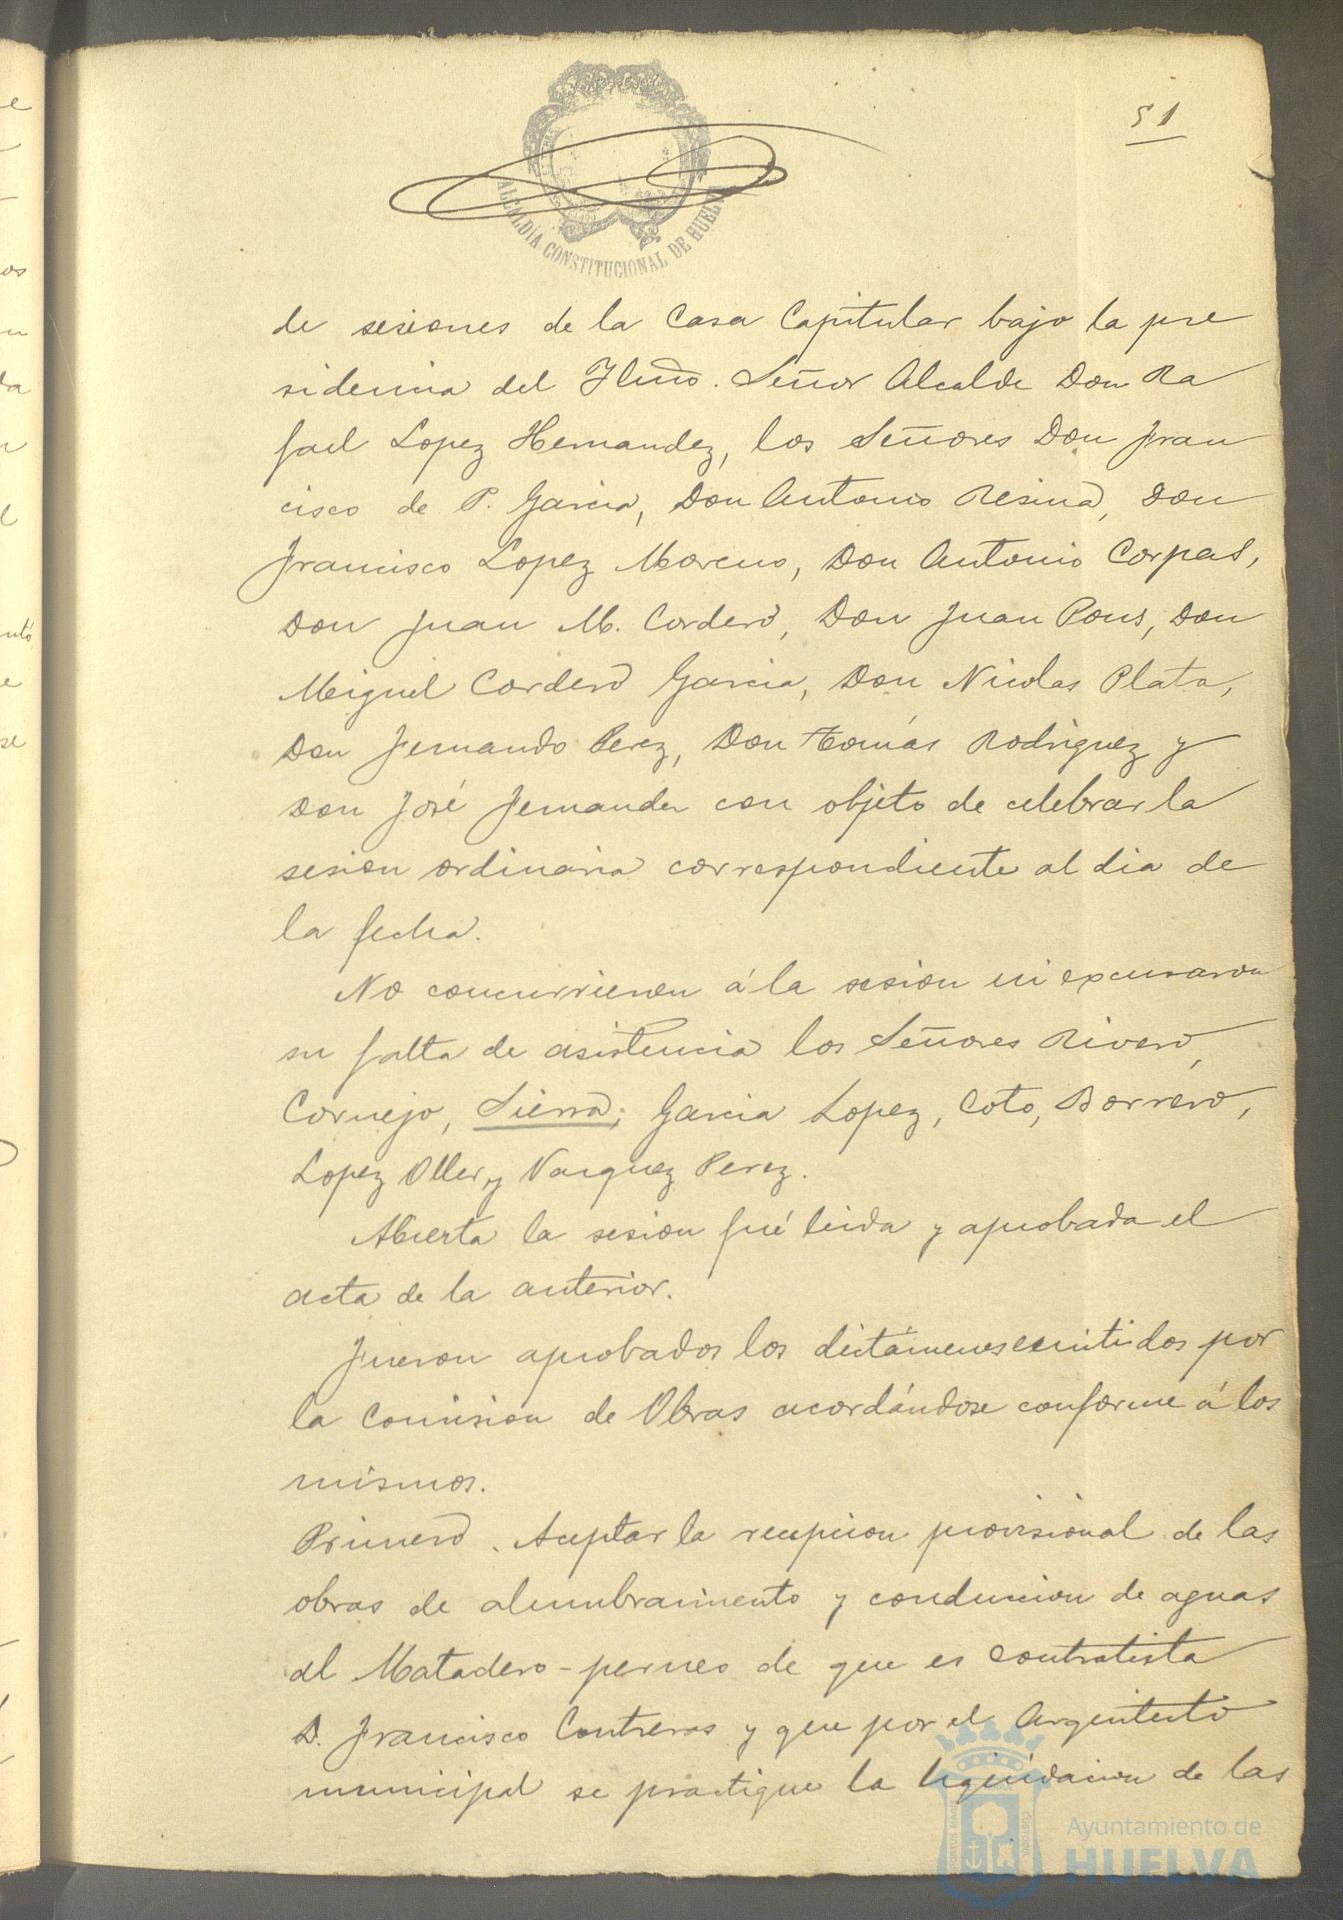 51
ALCALDÍA CONSTITUCIONAL DE HUELVA
de sesiones de la Casa Capitular bajo la pre
sidencia del Ilmo. Señor Alcalde Don Ra
fael Lopez Hernandez, los Señores Don Fran
cisco de P. Garcia, Don Antonio Resina, Don
Francisco Lopez Moreno, Don Antonio Corpas,
Don Juan M. Cordero, Don Juan Pons, Don
Miguel Cordero Garcia, Don Nicolas Plata,
Don Fernando Perez, Don Tomás Rodriguez y
Don José Fernandez con objeto de celebrar la
sesion ordinaria correspondiente al dia de
la fecha.
No concurrieron á la sesion ni excusaron
su falta de asistencia los Señores Rivero,
Cornejo, Sierra, Garcia Lopez, Coto, Borrero,
Lopez Oller, y Vazquez Perez.
Abierta la sesion fué leida y aprobada el
acta de la anterior.
Fueron aprobados los dictámenes emitidos por
la Comision de Obras acordándose conforme á los
mismos.
Primero. Aceptar la recepcion provisional de las
obras de alumbramiento y conduccion de aguas
al Matadero-perneo de que es contratista
D. Francisco Contreras y que por el Arquitecto
municipal se practique la liquidacion de las
Ayuntamiento de
HUELVA